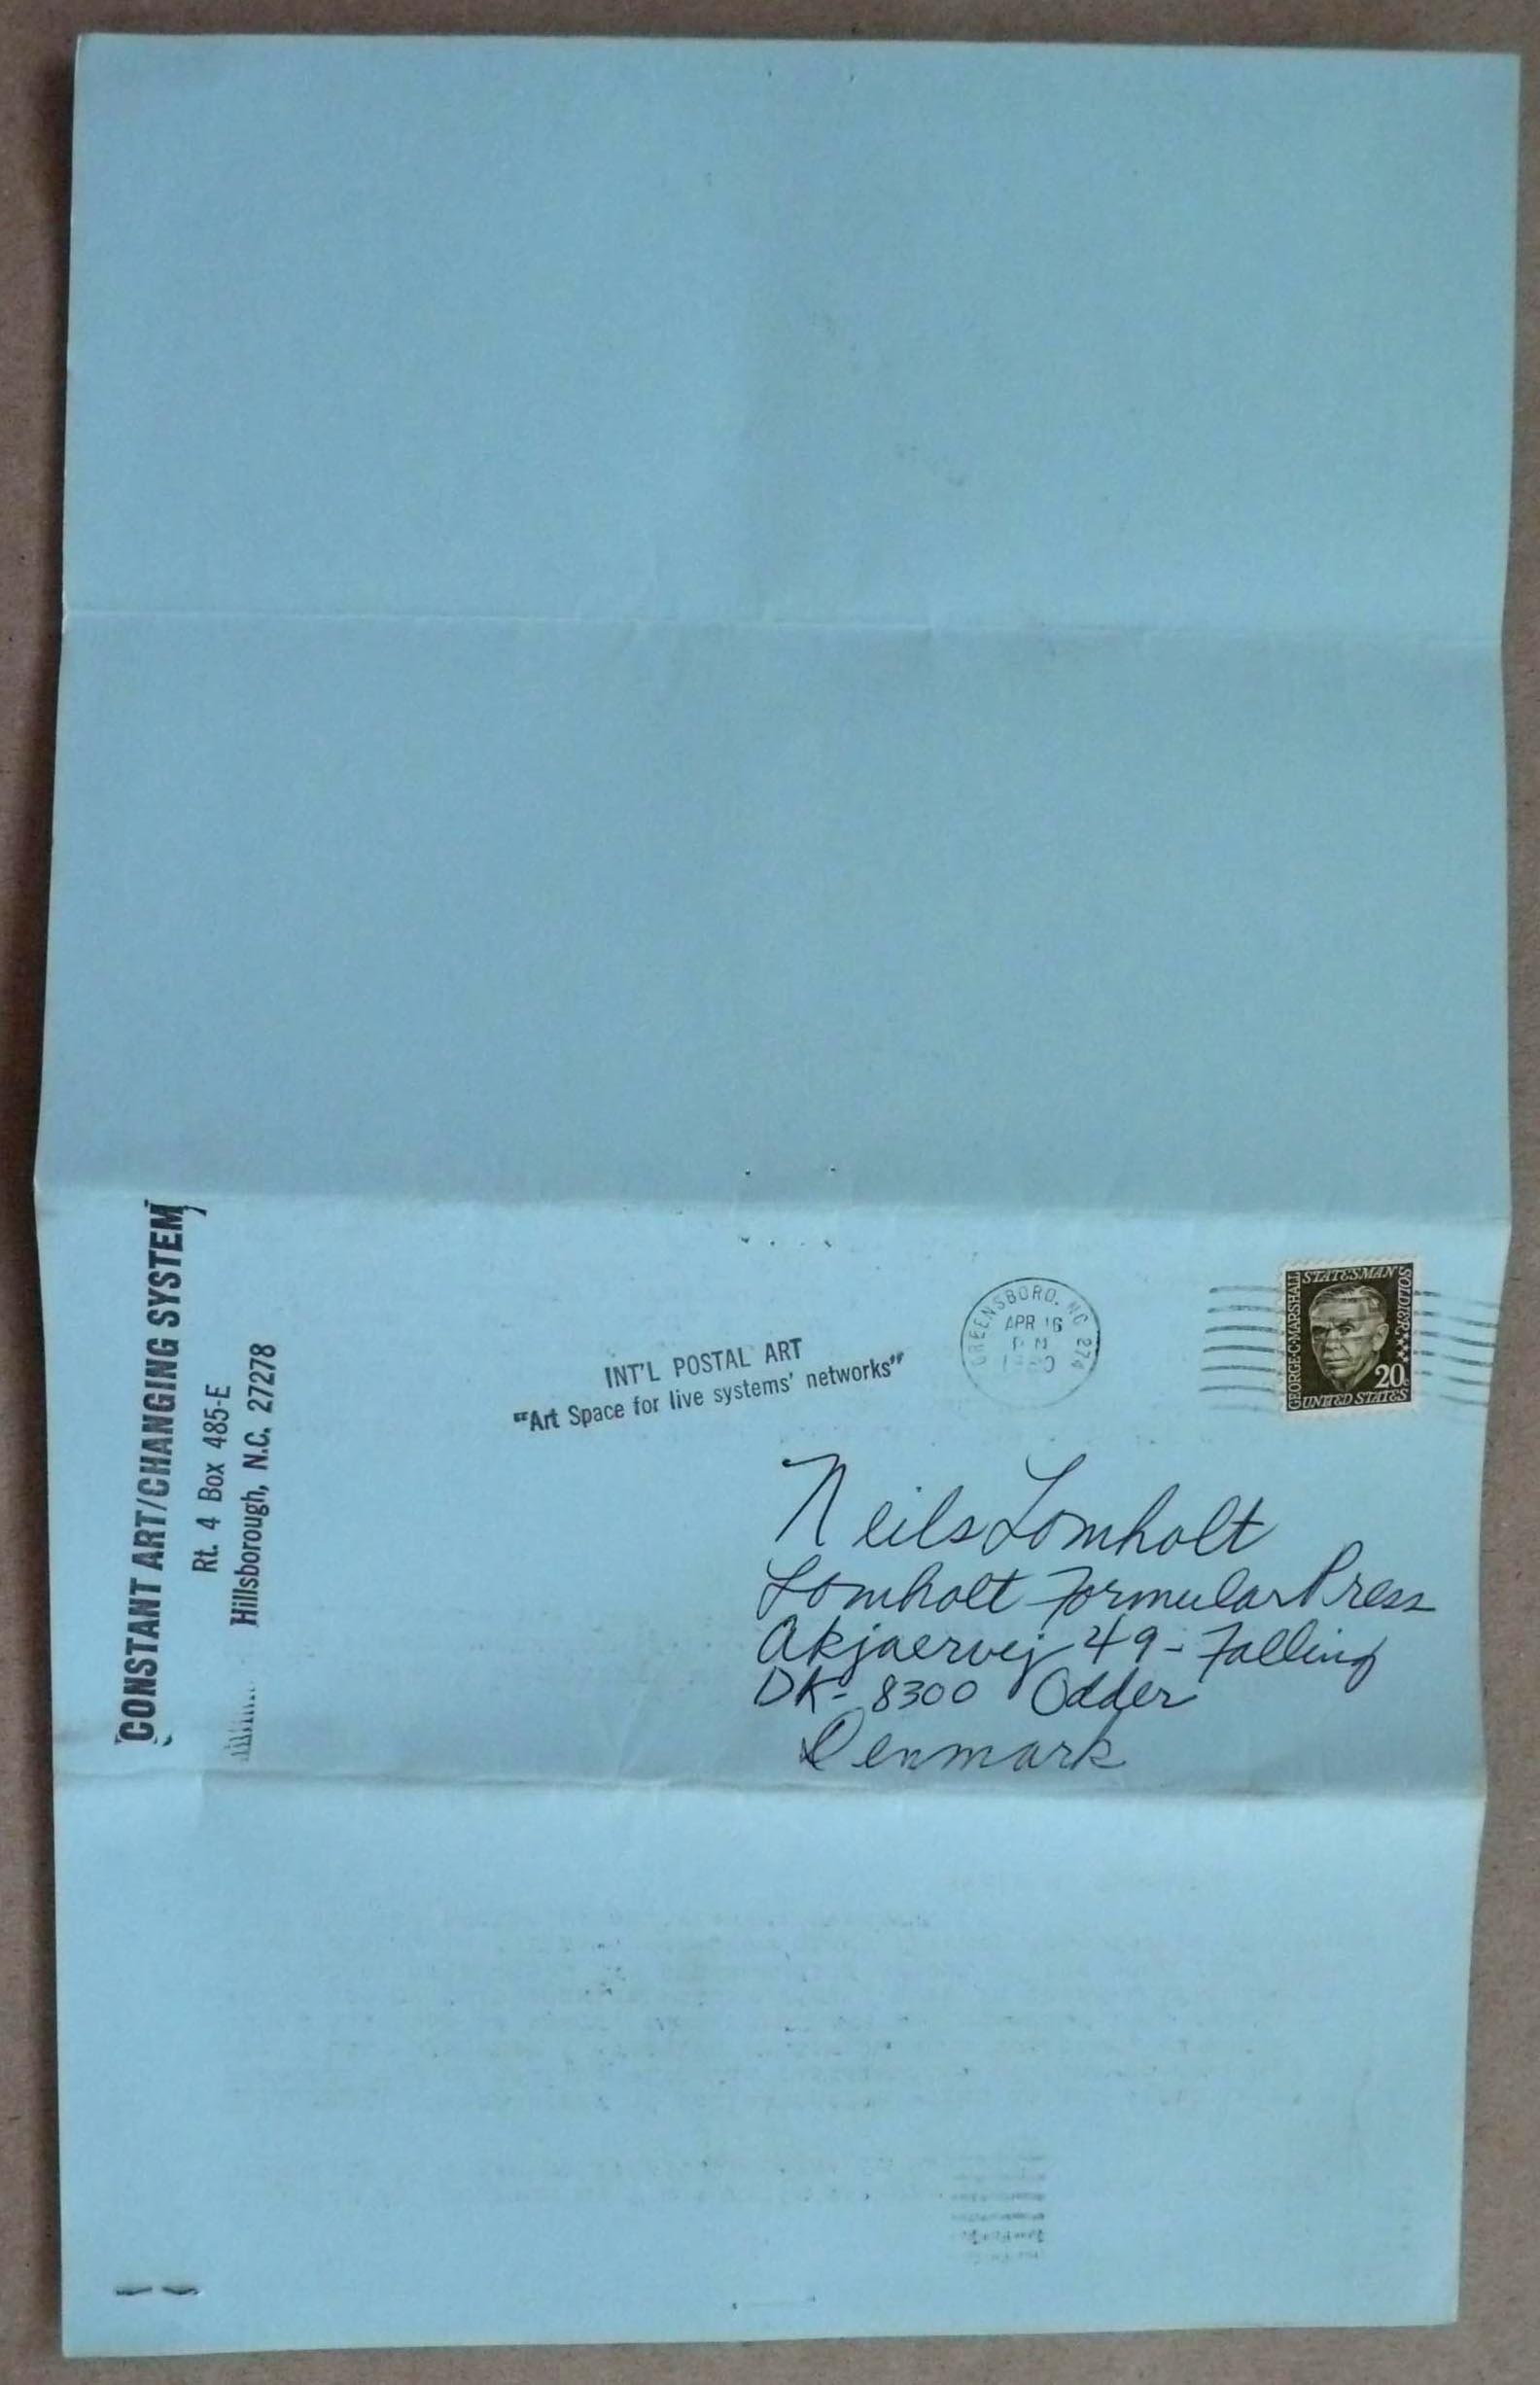 CONSTANT ART/CHANGING SYSTEM
Rt. 4 Box 485-E
Hillsborough, N.C. 27278
INT'L POSTAL ART
"Art Space for live systems' networks"
GREENSBORO, NC 274
APR 16
PM
1980
GEORGE·C·MARSHALL
STATESMAN
SOLDIER
20c
UNITED STATES
Neils Lomholt
Lomholt Formular Press
Akjaervej 49 - Falling
DK- 8300 Odder
Denmark